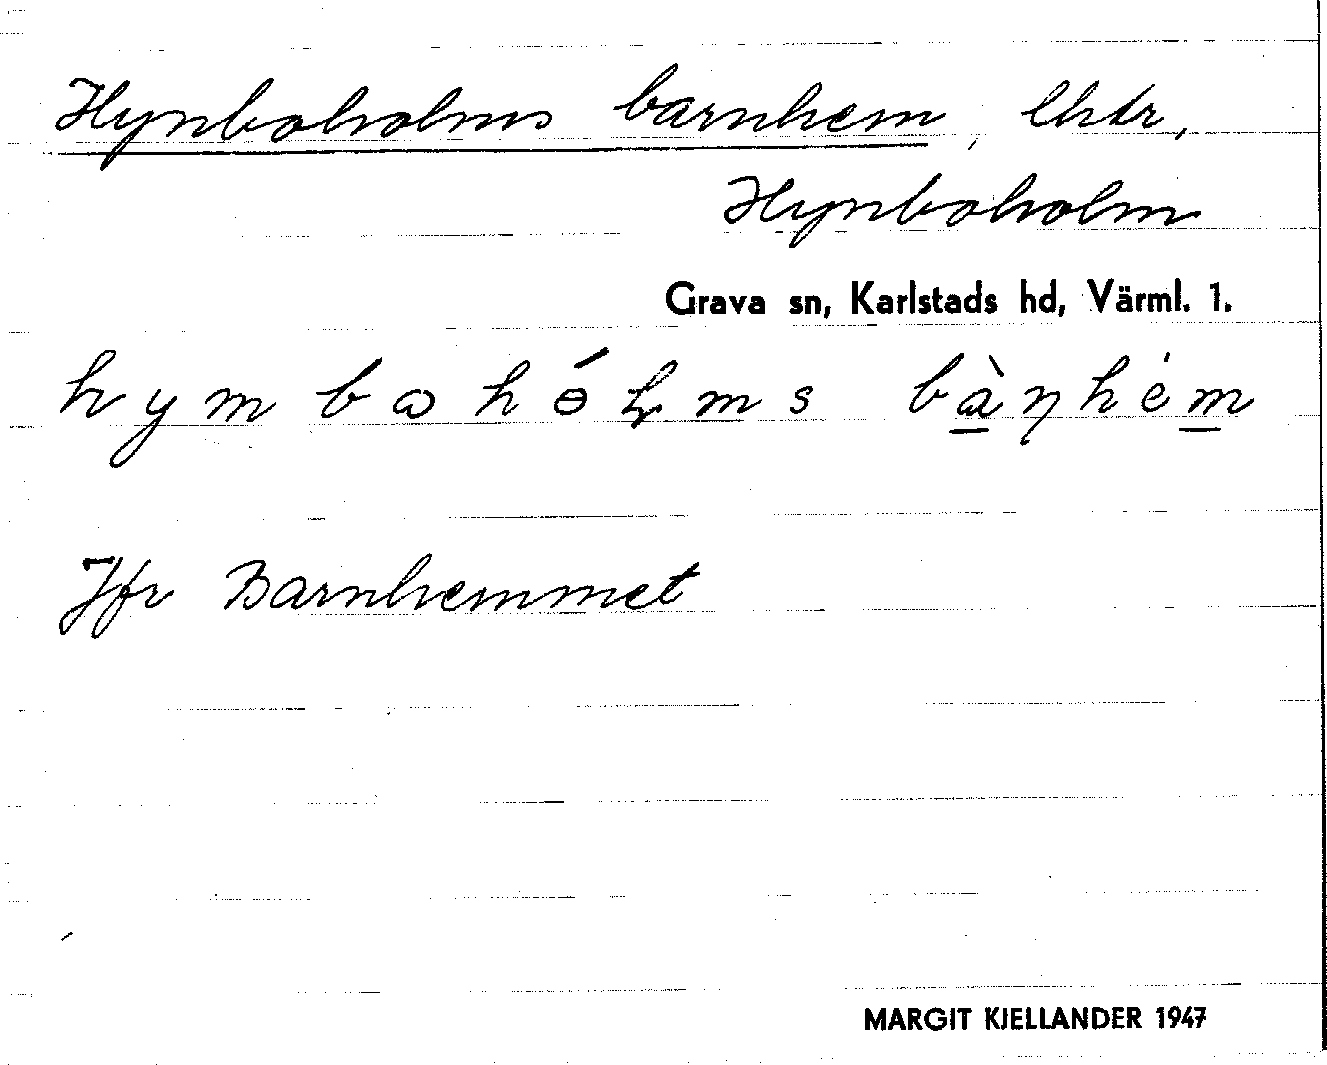 Hynboholms barnhem, lhtr,
Hynboholm
Grava sn, Karlstads hd, Värml. 1.
Jfr Barnhemmet
MARGIT KJELLANDER 1947